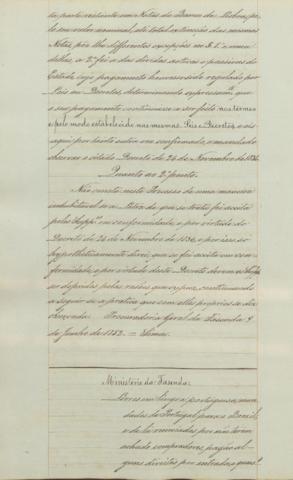 de parte existente em Notas do Banco de Lisboa, pe-
lo seu valor nominal, até total extincção das mesmas
Notas, pôz lhe differentes excepções no § 1.º e uma
dellas, a 2.ª foi a das dividas activas e passivas do
Estado cujo pagamento houvesse sido regulado por
Leis ou Decretos, determinando expressam.te que
o seu pagamento, continuasse a ser feito nos termos
e pelo modo estabelecido nas mesmas Leis e Decretos, e eis
aqui por tanto outra vez confirmado, e mandado
observar o citado Decreto de 26 de Novembro de 1836.
Quanto ao 2.º ponto.
Não consta neste Processo de uma maneira
indubitavel se a Letra de que se trata foi aceita
pelos Supp.es em conformidade, e por virtude do
Decreto de 26 de Novembro de 1836, e por isso só
hypotheticamente direi, que se foi aceita em con-
formidade, e por virtude deste Decreto devem os Supp.es
ser deferidos pelas rasões que expuz, continuando
a seguir-se a pratica que com elles proprios se tem
observado. Procuradoria Geral da Fazenda 9
de Junho de 1852. =
Ministerio da Fazenda
Livros em lingoa portugueza, man-
dados de Portugal para o Brasil,
e de lá reenviados por não terem
achado compradores, pagão al-
guns direitos por entrada quan.do